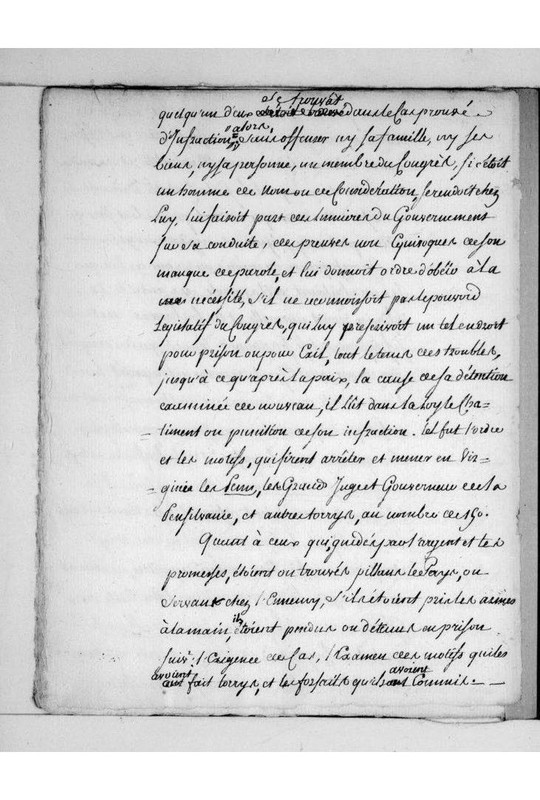 se trouvat
quelqu'un d'eux dans le Cas prouvé
d'Infraction, alors, sans offenser ny sa famille, ny ses
biens, ny sa personne, un membre du Congrès, si c'étoit
un homme de nom ou de Considération, se rendoit chez
Luy, lui faisoit part des Lumieres du Gouvernement
sur sa conduite, des preuves non Equivoques de son
manque de parole, et lui donnoit ordre d'obéir à la
nécéssité, s'il ne reconnoissoit pas le pouvoir
Legislatif du Congrès, qui luy prescrivoit un tel endroit
pour prison ou pour Exil, tout le tems des troubles,
jusqu'à ce qu'après la paix, la cause de sa détention
examinée de nouveau, il Lût dans la Loy le Cha-
timent ou punition de son infraction. tel fut l'ordre
et les motifs, qui firent arrêter et mener en Vir-
ginie les Penns, les Grands Juge et Gouverneur de la
Pensilvanie, et autres torrys, au nombre de 50.
Quant à ceux qui, guidés par l'argent et les
promesses, étoient ou trouvés pillans le Pays, ou
Servant chez l'Ennemy, s'ils étoient pris les armes
à la main, ils étoient pendus ou détenus en prison
suiv.t l'Exigence du Cas, l'Examen des motifs qui les
avoient fait torrys, et les forfaits qu'ils avoient Commis.